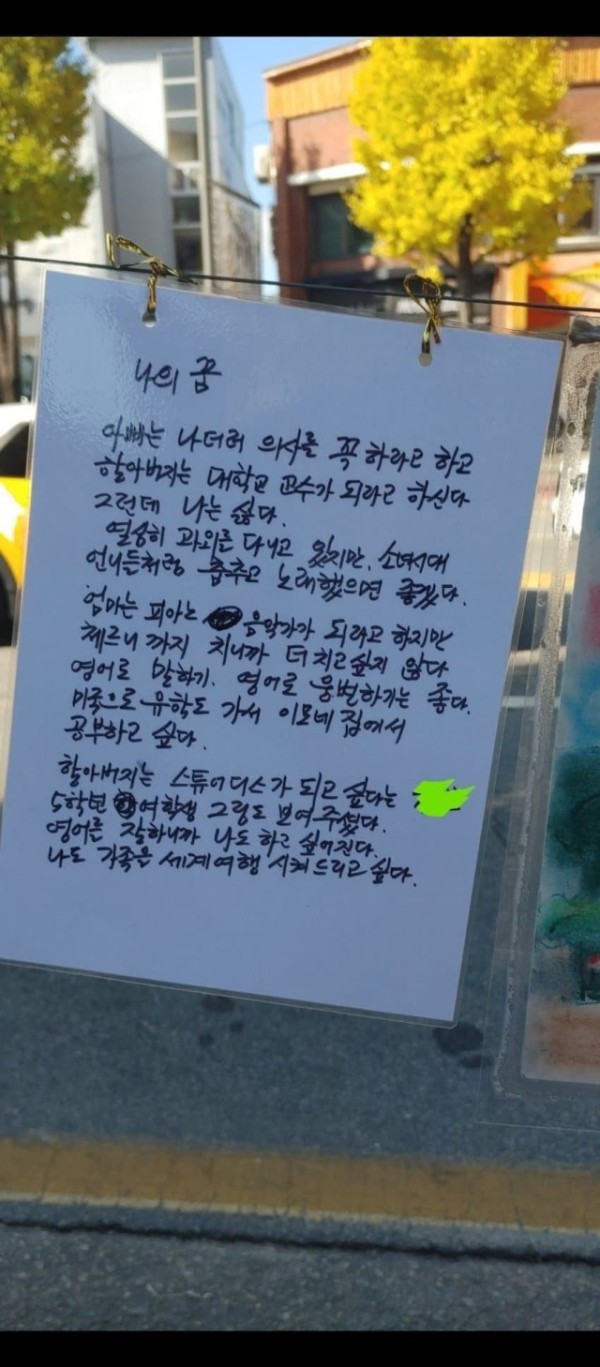 나의 꿈
아빠는 나더러 의사를 꼭 하라고 하고
할아버지는 대학교 교수가 되라고 하신다
그런데 나는 싫다.
열심히 과외를 다니고 있지만, 소녀시대
언니들처럼 춤추고 노래했으면 좋겠다.
엄마는 피아노 음악가가 되라고 하지만
체르니까지 치니까 더 치고싶지 않다
영어로 말하기. 영어로 웅변하기는 좋다.
미국으로 유학도 가서 이모네 집에서
공부하고 싶다.
할아버지는 스튜어디스가 되고 싶다는
5학년 여학생 그림도 보여주셨다.
영어를 잘하니까 나도 하고 싶어진다.
나도 가족을 세계여행 시켜드리고 싶다.